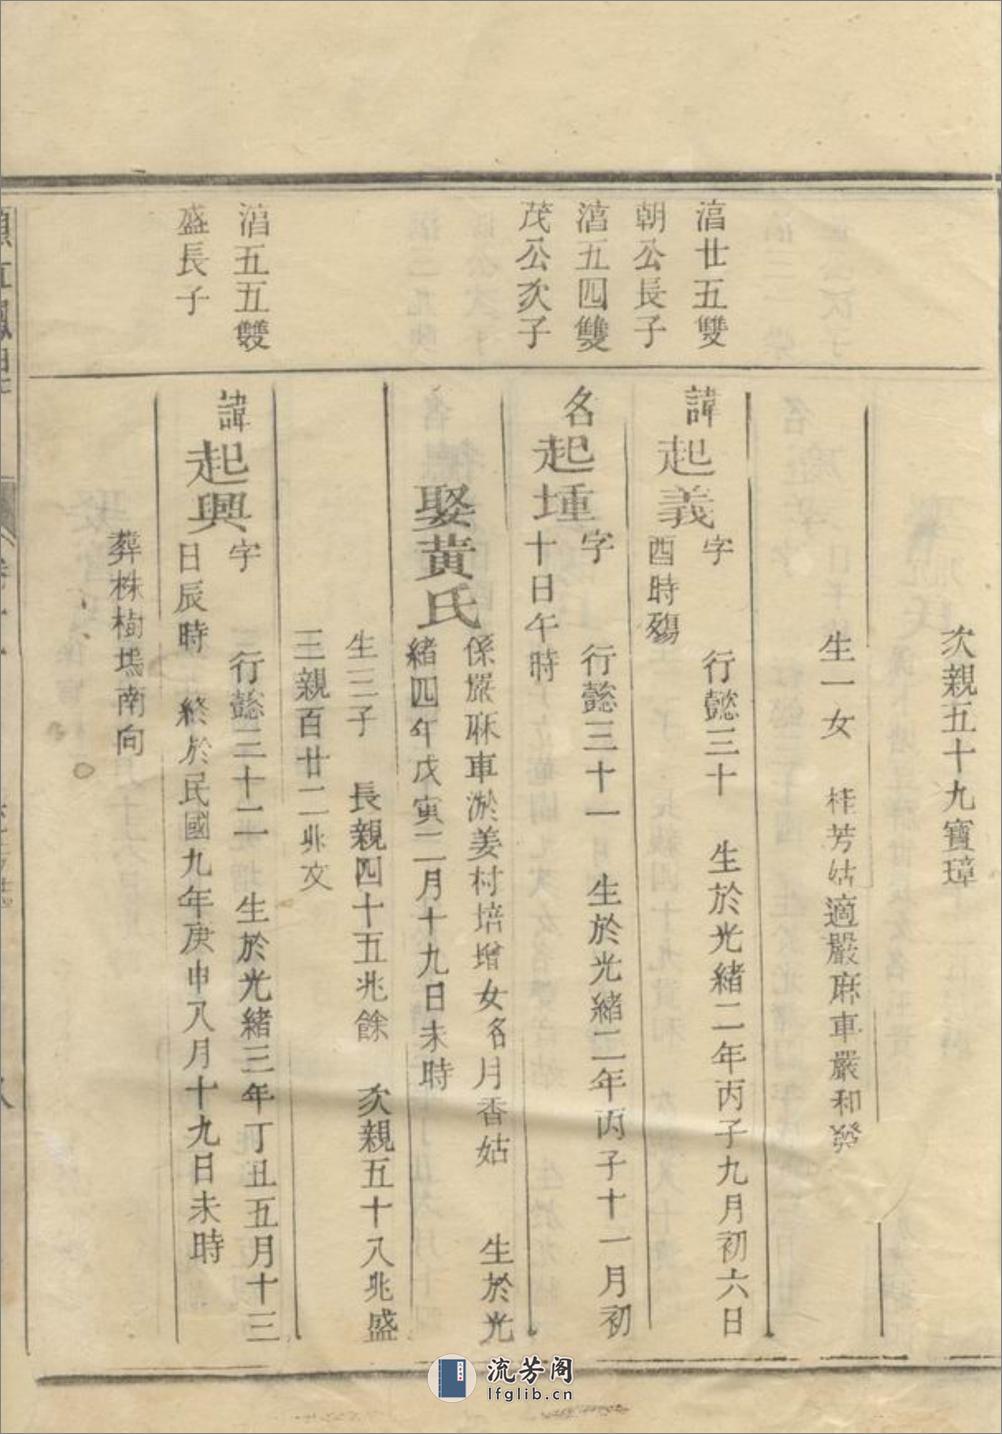 次親五十九寶璋
生一女 桂芳姑適嚴麻車嚴和發
滀廿五雙
朝公長子
諱起義 字 行懿三十 生於光緒二年丙子九月初六日
酉時殤
滀五四雙
茂公次子
名起堹 字 行懿三十一 生於光緒二年丙子十一月初
十日午時
娶黃氏 係嚴麻車淤姜村培增女名月香姑 生於光
緒四年戊寅二月十九日未時
生三子 長親四十五兆餘 次親五十八兆盛
三親百廿二兆文
滀五五雙
盛長子
諱起興 字 行懿三十二 生於光緒三年丁丑五月十三
日辰時 終於民國九年庚申八月十九日未時
葬株樹塢南向
流芳阁
lfglib.cn